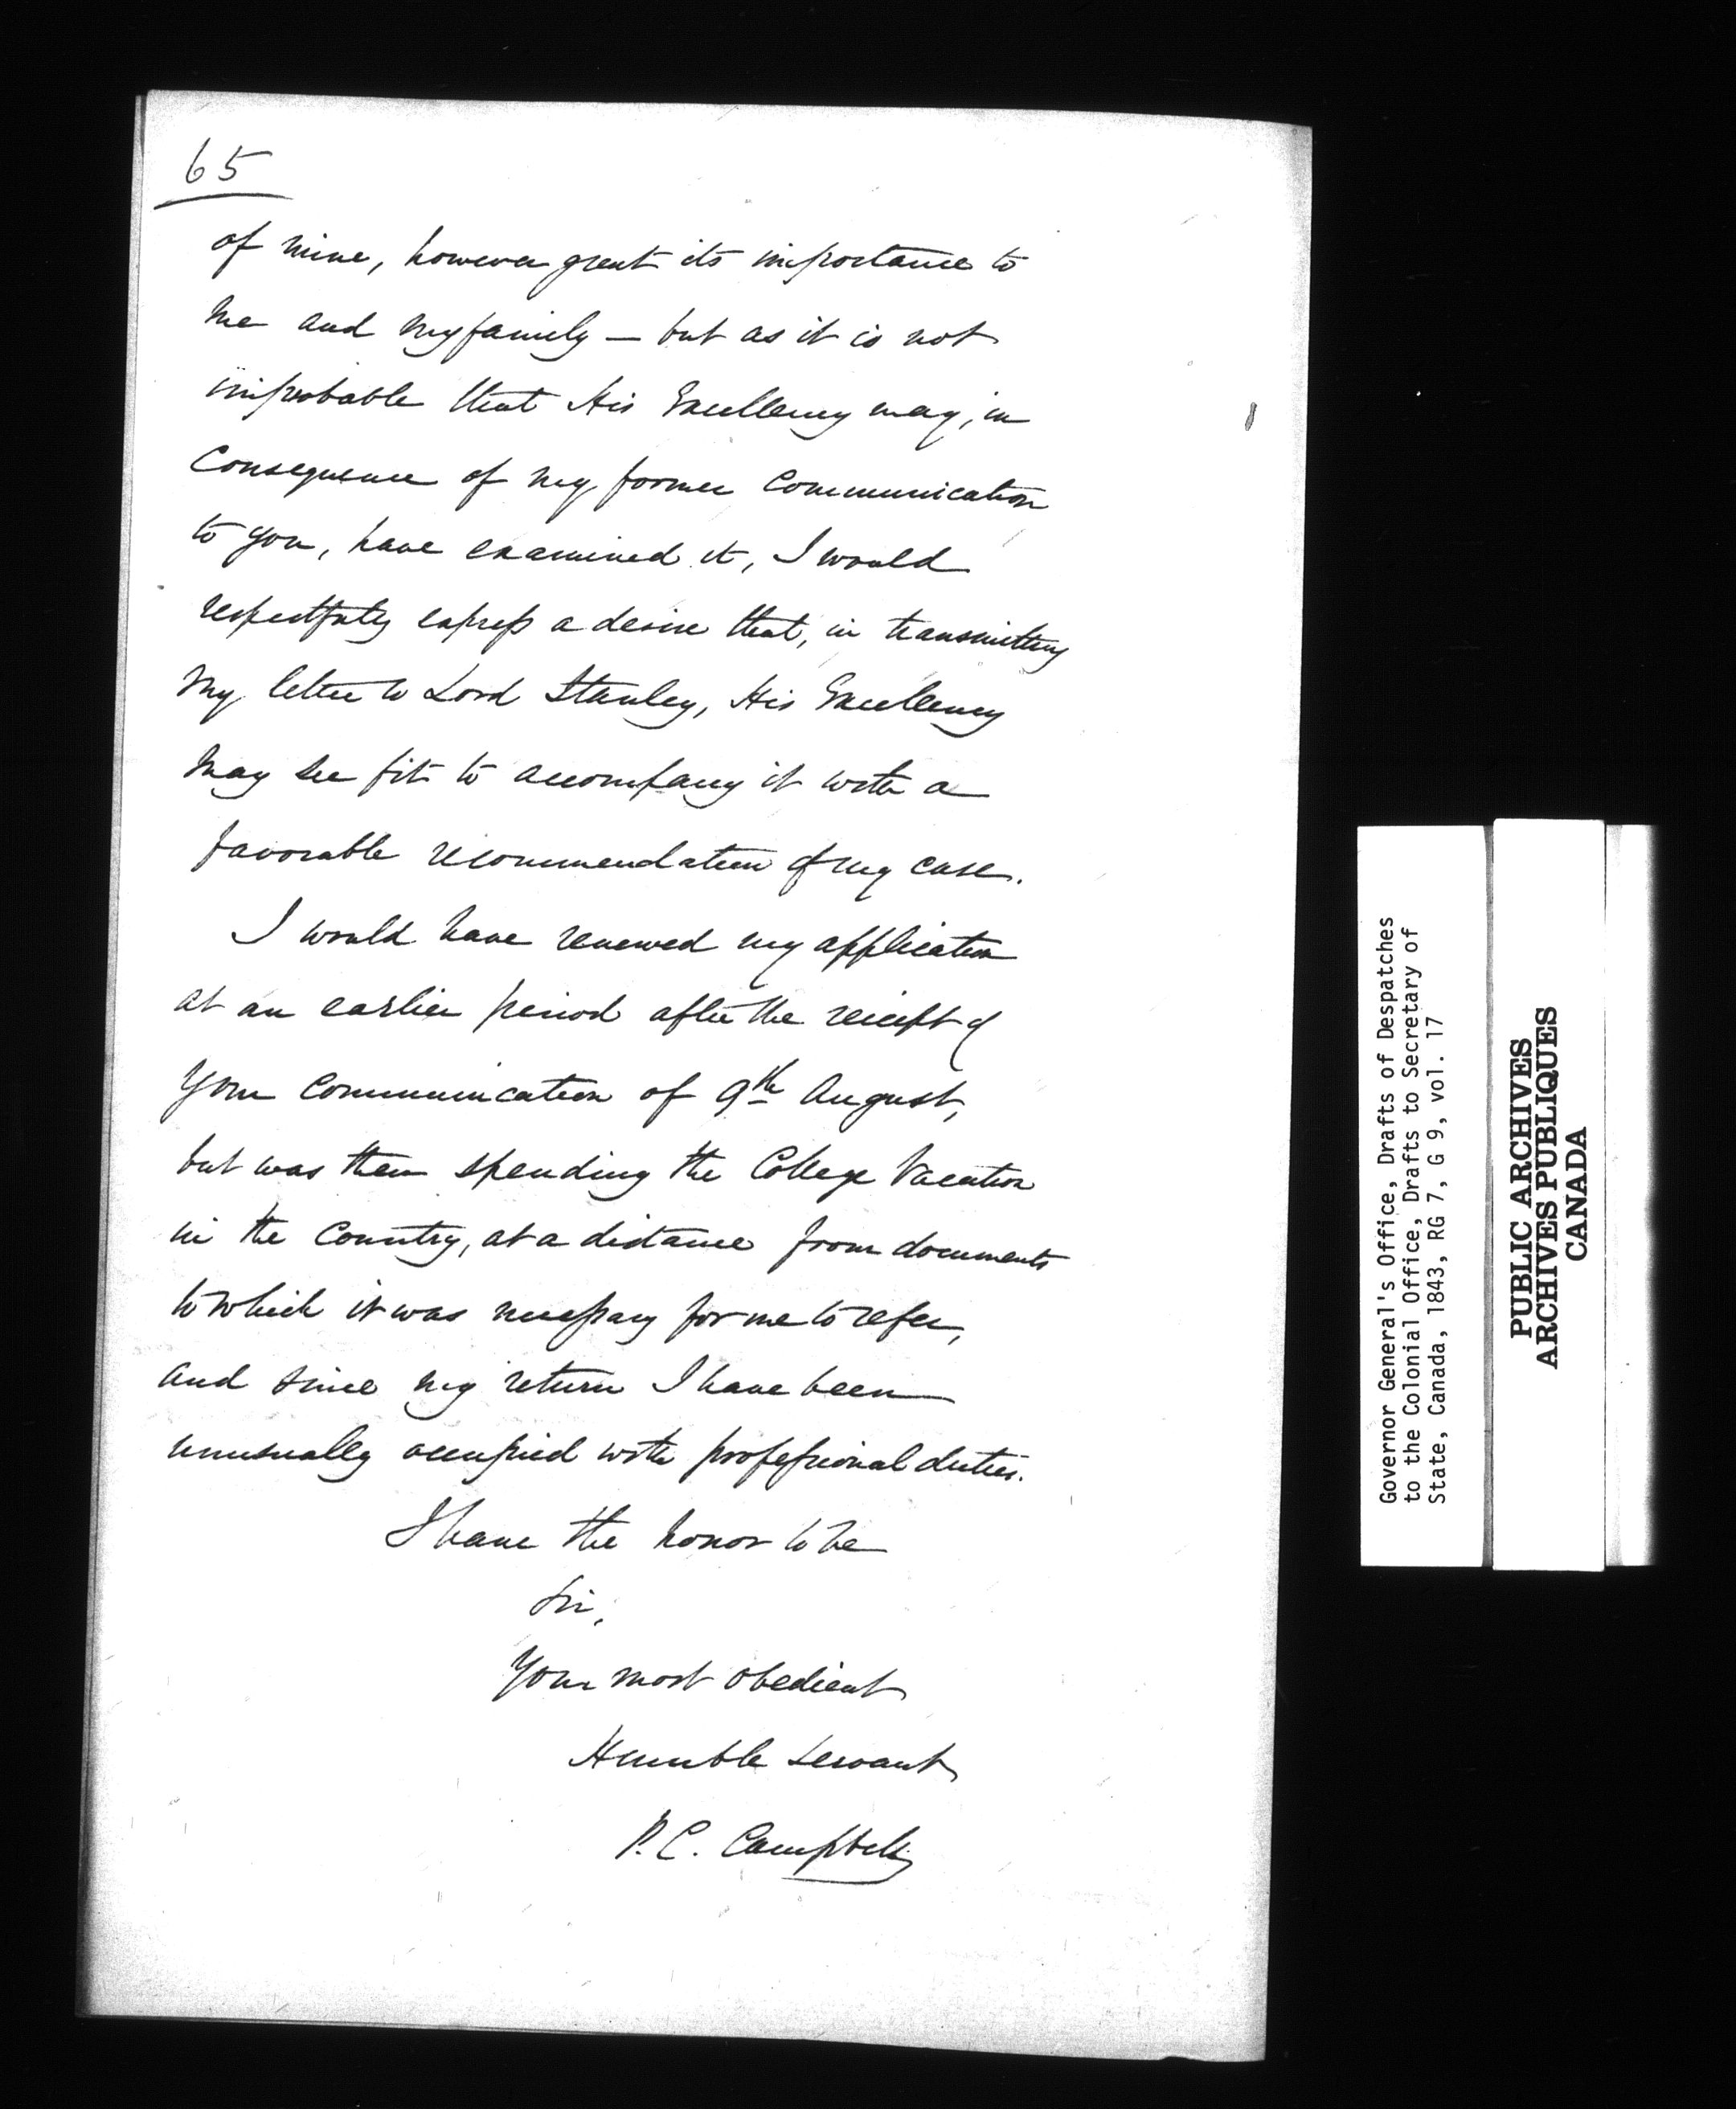 65
of mine, however great its importance to
me and my family — but as it is not
improbable that His Excellency may, in
Consequence of my former Communication
to you, have examined it, I would
respectfully express a desire that, in transmitting
my letter to Lord Stanley, His Excellency
may see fit to accompany it with a
favorable recommendation of my case.
I would have renewed my application
at an earlier period after the receipt of
your Communication of 9th August,
but was then spending the College Vacation
in the Country, at a distance from documents
to which it was necessary for me to refer,
and since my return I have been
unusually occupied with professional duties.
I have the honor to be
Sir,
Your most obedient
Humble servant
P. C. Campbell
Governor General's Office, Drafts of Despatches
to the Colonial Office, Drafts to Secretary of
State, Canada, 1843, RG 7, G 9, vol. 17
PUBLIC ARCHIVES
ARCHIVES PUBLIQUES
CANADA